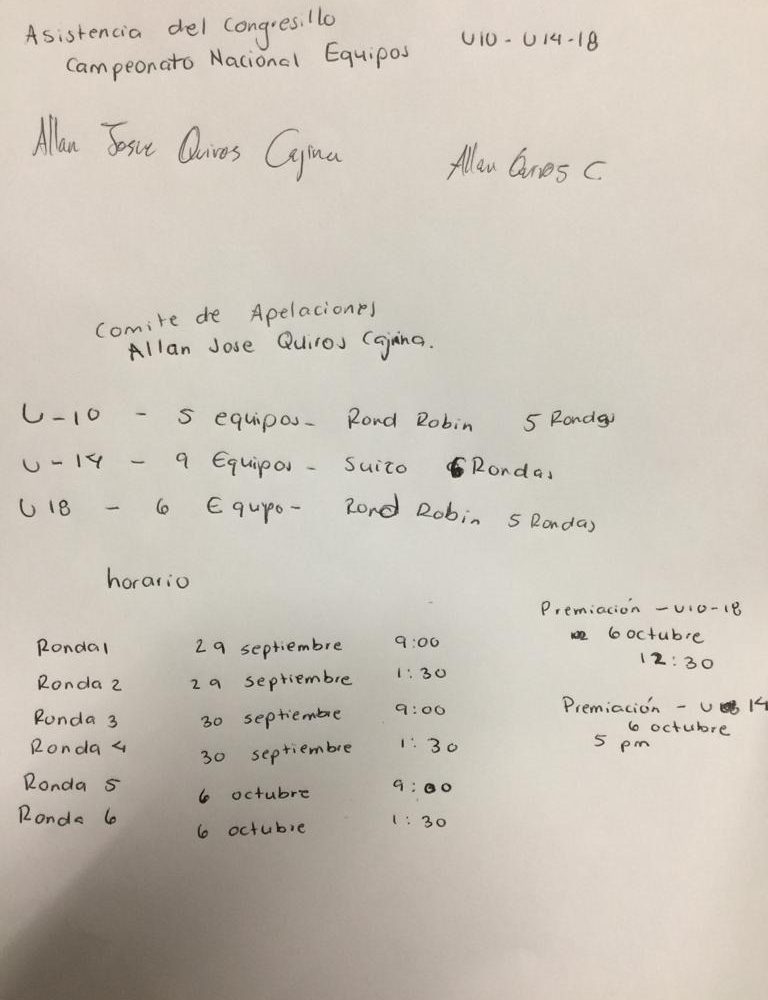 Asistencia del Congresillo
Campeonato Nacional Equipos U10 - U14-18
Allan Josue Quiros Cajina
Allan Quiros C.
Comite de Apelaciones
Allan Jose Quiros Cajina.
U-10 - 5 equipos - Rond Robin 5 Rondas
U-14 - 9 Equipos - Suizo 6 Rondas
U 18 - 6 Equipo - Rond Robin 5 Rondas
horario
Ronda 1 29 septiembre 9:00
Ronda 2 29 septiembre 1:30
Ronda 3 30 septiembre 9:00
Ronda 4 30 septiembre 1:30
Ronda 5 6 octubre 9:00
Ronda 6 6 octubre 1:30
Premiación - U10-18
6 octubre
12:30
Premiación - U 14
6 octubre
5 pm